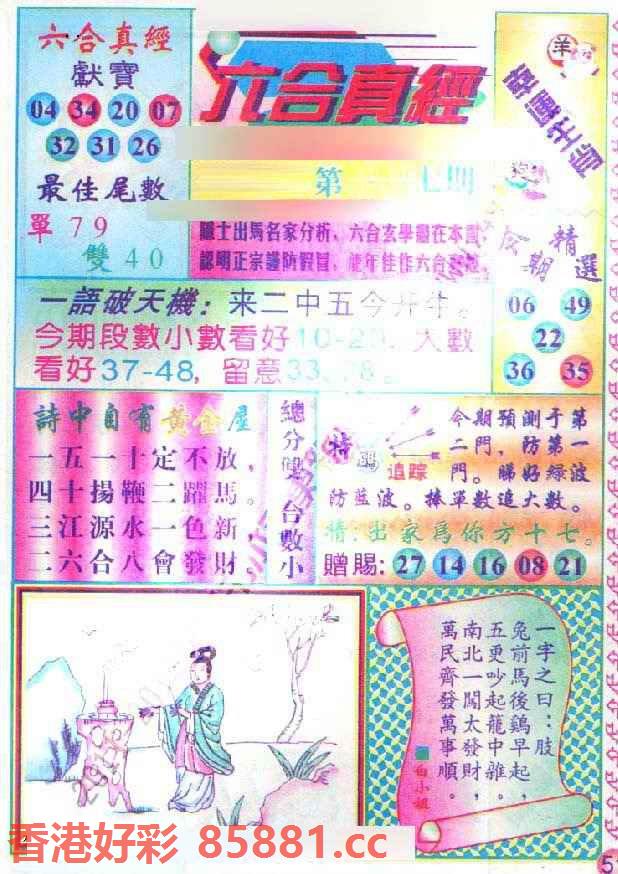 六合真經
獻寶
04 34 20 07
32 31 26
最佳尾數
單79
雙40
六合真經
第
期
羊
隱士出馬名家分析，六合玄學盡在本
認明正宗謹防假冒，
期
精選
06 49
22
36 35
一語破天機：来二中五今开牛。
今期段數小數看好10-2 ，大數
看好37-48，留意33
詩中自有黃金屋
一五一十定不放，
四十揚鞭二躍馬。
三江源水一色新，
二六合八會發財。
總分雙 合數小
特碼
追踪
今期預測于第
二門，防第一
門。睇好綠波
防蓝波。捧單數追大數。
猜：出家爲你方十七。
贈賜：27 14 16 08 21
一字之曰：肢
兔前馬後鷄早起，
五更吵起龍中雜。
南北一闖太發財，
萬民齊發萬事順。
白小姐
香港好彩 85881.cc